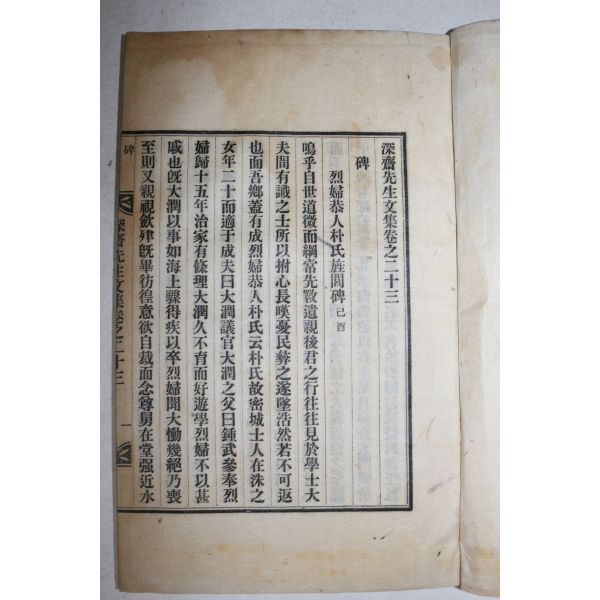 深齋先生文集卷之二十三
碑
烈婦恭人朴氏旌閭碑 己酉
嗚乎自世道微而綱常先斁遺親後君之行往往見於學士大
夫間有識之士所以拊心長嘆憂民彝之遂墜浩然若不可返
也而吾鄉蓋有成烈婦恭人朴氏云朴氏故密城士人在洙之
女年二十而適于成夫曰大潤議官大潤之父曰鍾武參奉烈
婦歸十五年治家有條理大潤久不育而好遊學烈婦不以甚
戚也旣大潤以事如海上驟得疾以卒烈婦聞大慟幾絕乃喪
至則又親視斂肂旣畢彷徨意欲自裁而念尊舅在堂强近水
碑
深齋先生文集卷之二十三
一